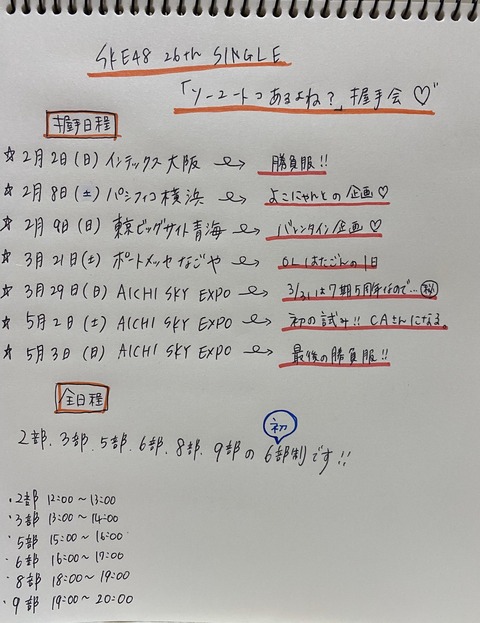 SKE48 26th SINGLE
「ソーユートコあるよね?」握手会♡
握手日程
☆ 2月2日(日) インテックス大阪 → 勝負服!!
☆ 2月8日(土) パシフィコ横浜 → よこにゃんとの企画♡
☆ 2月9日(日) 東京ビッグサイト青海 → バレンタイン企画♡
☆ 3月21日(土) ポートメッセなごや → OLはたごんの1日
☆ 3月29日(日) AICHI SKY EXPO → 3/31は7期5周年なので…㊙
☆ 5月2日(土) AICHI SKY EXPO → 初の試み!! CAさんになる。
☆ 5月3日(日) AICHI SKY EXPO → 最後の勝負服!!
全日程
初
2部、3部、5部、6部、8部、9部の6部制です!!
・2部 12:00〜13:00
・3部 13:00〜14:00
・5部 15:00〜16:00
・6部 16:00〜17:00
・8部 18:00〜19:00
・9部 19:00〜20:00